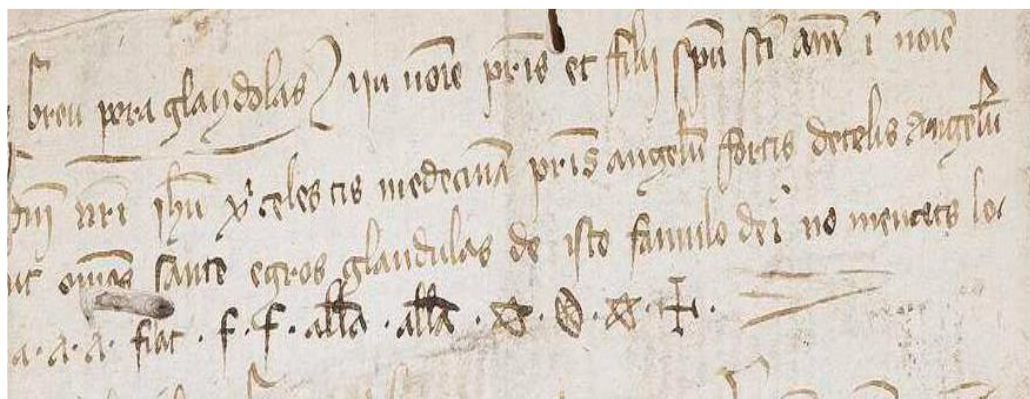 breu pera glandolas) yn noīe pr̄is et filij sp̄u sc̄i am̄ ī noīe
dn̄i nr̄i yhū xp̄i celestis medecinā pr̄is angelū fortis de celis angelū
ut om̄es sante egros glandulas de isto famulo dei no
a · a · a · fiat · f · f · all̄a · all̄a · ✡ · ✡ · ✠ ·